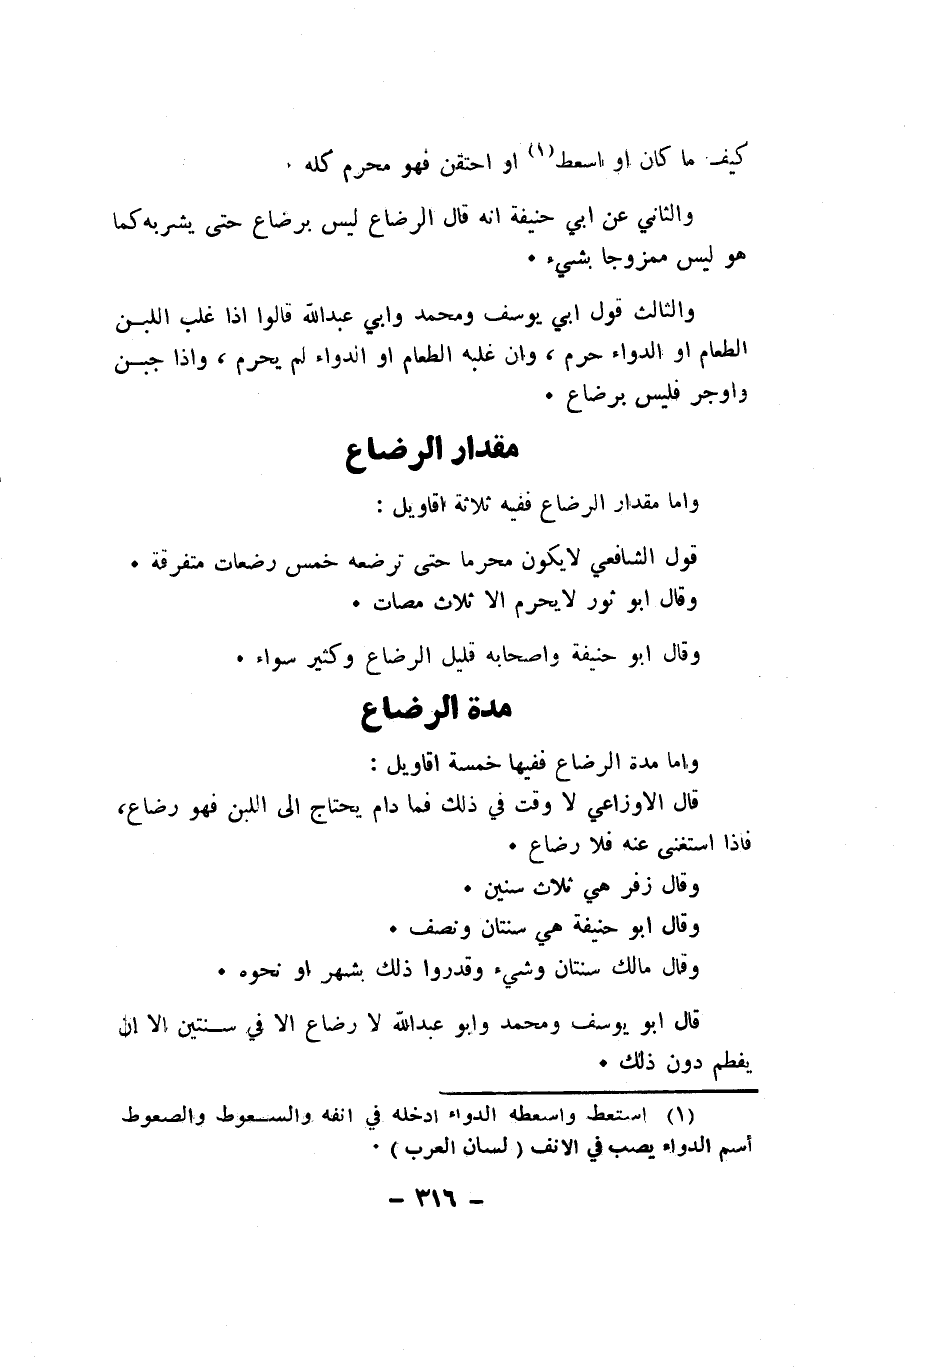 كيف ما كان او اسعط(١) او احتقن فهو محرم كله ٠
والثاني عن ابي حنيفة انه قال الرضاع ليس برضاع حتى يشربه كما
هو ليس ممزوجا بشيء ٠
والثالث قول ابي يوسف ومحمد وابي عبدالله قالوا اذا غلب اللبن
الطعام او الدواء حرم ، وان غلبه الطعام او الدواء لم يحرم ، واذا جبن
واوجر فليس برضاع ٠
مقدار الرضاع
واما مقدار الرضاع ففيه ثلاثة اقاويل :
قول الشافعي لايكون محرما حتى ترضعه خمس رضعات متفرقة ٠
وقال ابو ثور لايحرم الا ثلاث مصات ٠
وقال ابو حنيفة واصحابه قليل الرضاع وكثير سواء ٠
مدة الرضاع
واما مدة الرضاع ففيها خمسة اقاويل :
قال الاوزاعي لا وقت في ذلك فما دام يحتاج الى اللبن فهو رضاع،
فاذا استغنى عنه فلا رضاع ٠
وقال زفر هي ثلاث سنين ٠
وقال ابو حنيفة هي سنتان ونصف ٠
وقال مالك سنتان وشيء وقدروا ذلك بشهر او نحوه ٠
قال ابو يوسف ومحمد وابو عبدالله لا رضاع الا في سنتين الا ان
يفطم دون ذلك ٠
(١) استعط واسعطه الدواء ادخله في انفه والسعوط والصعوط
أسم الدواء يصب في الانف ( لسان العرب ) ٠
- ٣١٦ -